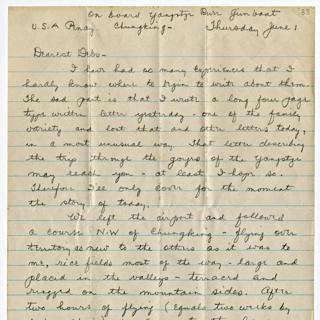 On board Yangtze River Gunboat 33
U.S.A Army Chungking- Thursday June 1
Dearest Debo-
I have had so many experiences that I
hardly know where to begin to write about them.
The sad part is that I wrote a long four page
type written letter yesterday - one of the family
variety and lost that and other letters today,
in a most unusual way. That letter describing
the trip through the gorges of the Yangtze
may reach you - at least I hope so.
Therefore I'll only cover for the moment
the story of today.
We left the airport and followed
a course N.W of Chungking - flying over
territory as new to the others as it was to
me, rice fields most of the way - large and
placid in the valleys - terraced and
rugged on the mountain sides. After
two hours of flying (equals two weeks by